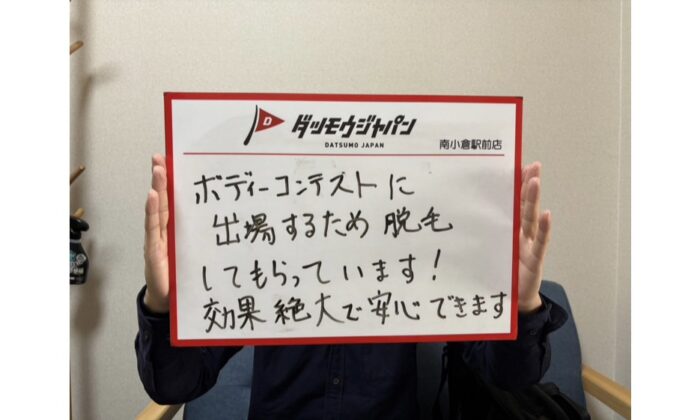 D
ダツモウジャパン
DATSUMO JAPAN
南小倉駅前店
ボディーコンテストに
出場するため脱毛
してもらっています!
効果絶大で安心できます